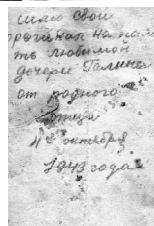 шлю свой
оригинал на памя
ть любимой
дочери Галине
от родного
отца
4 октября
1943 года